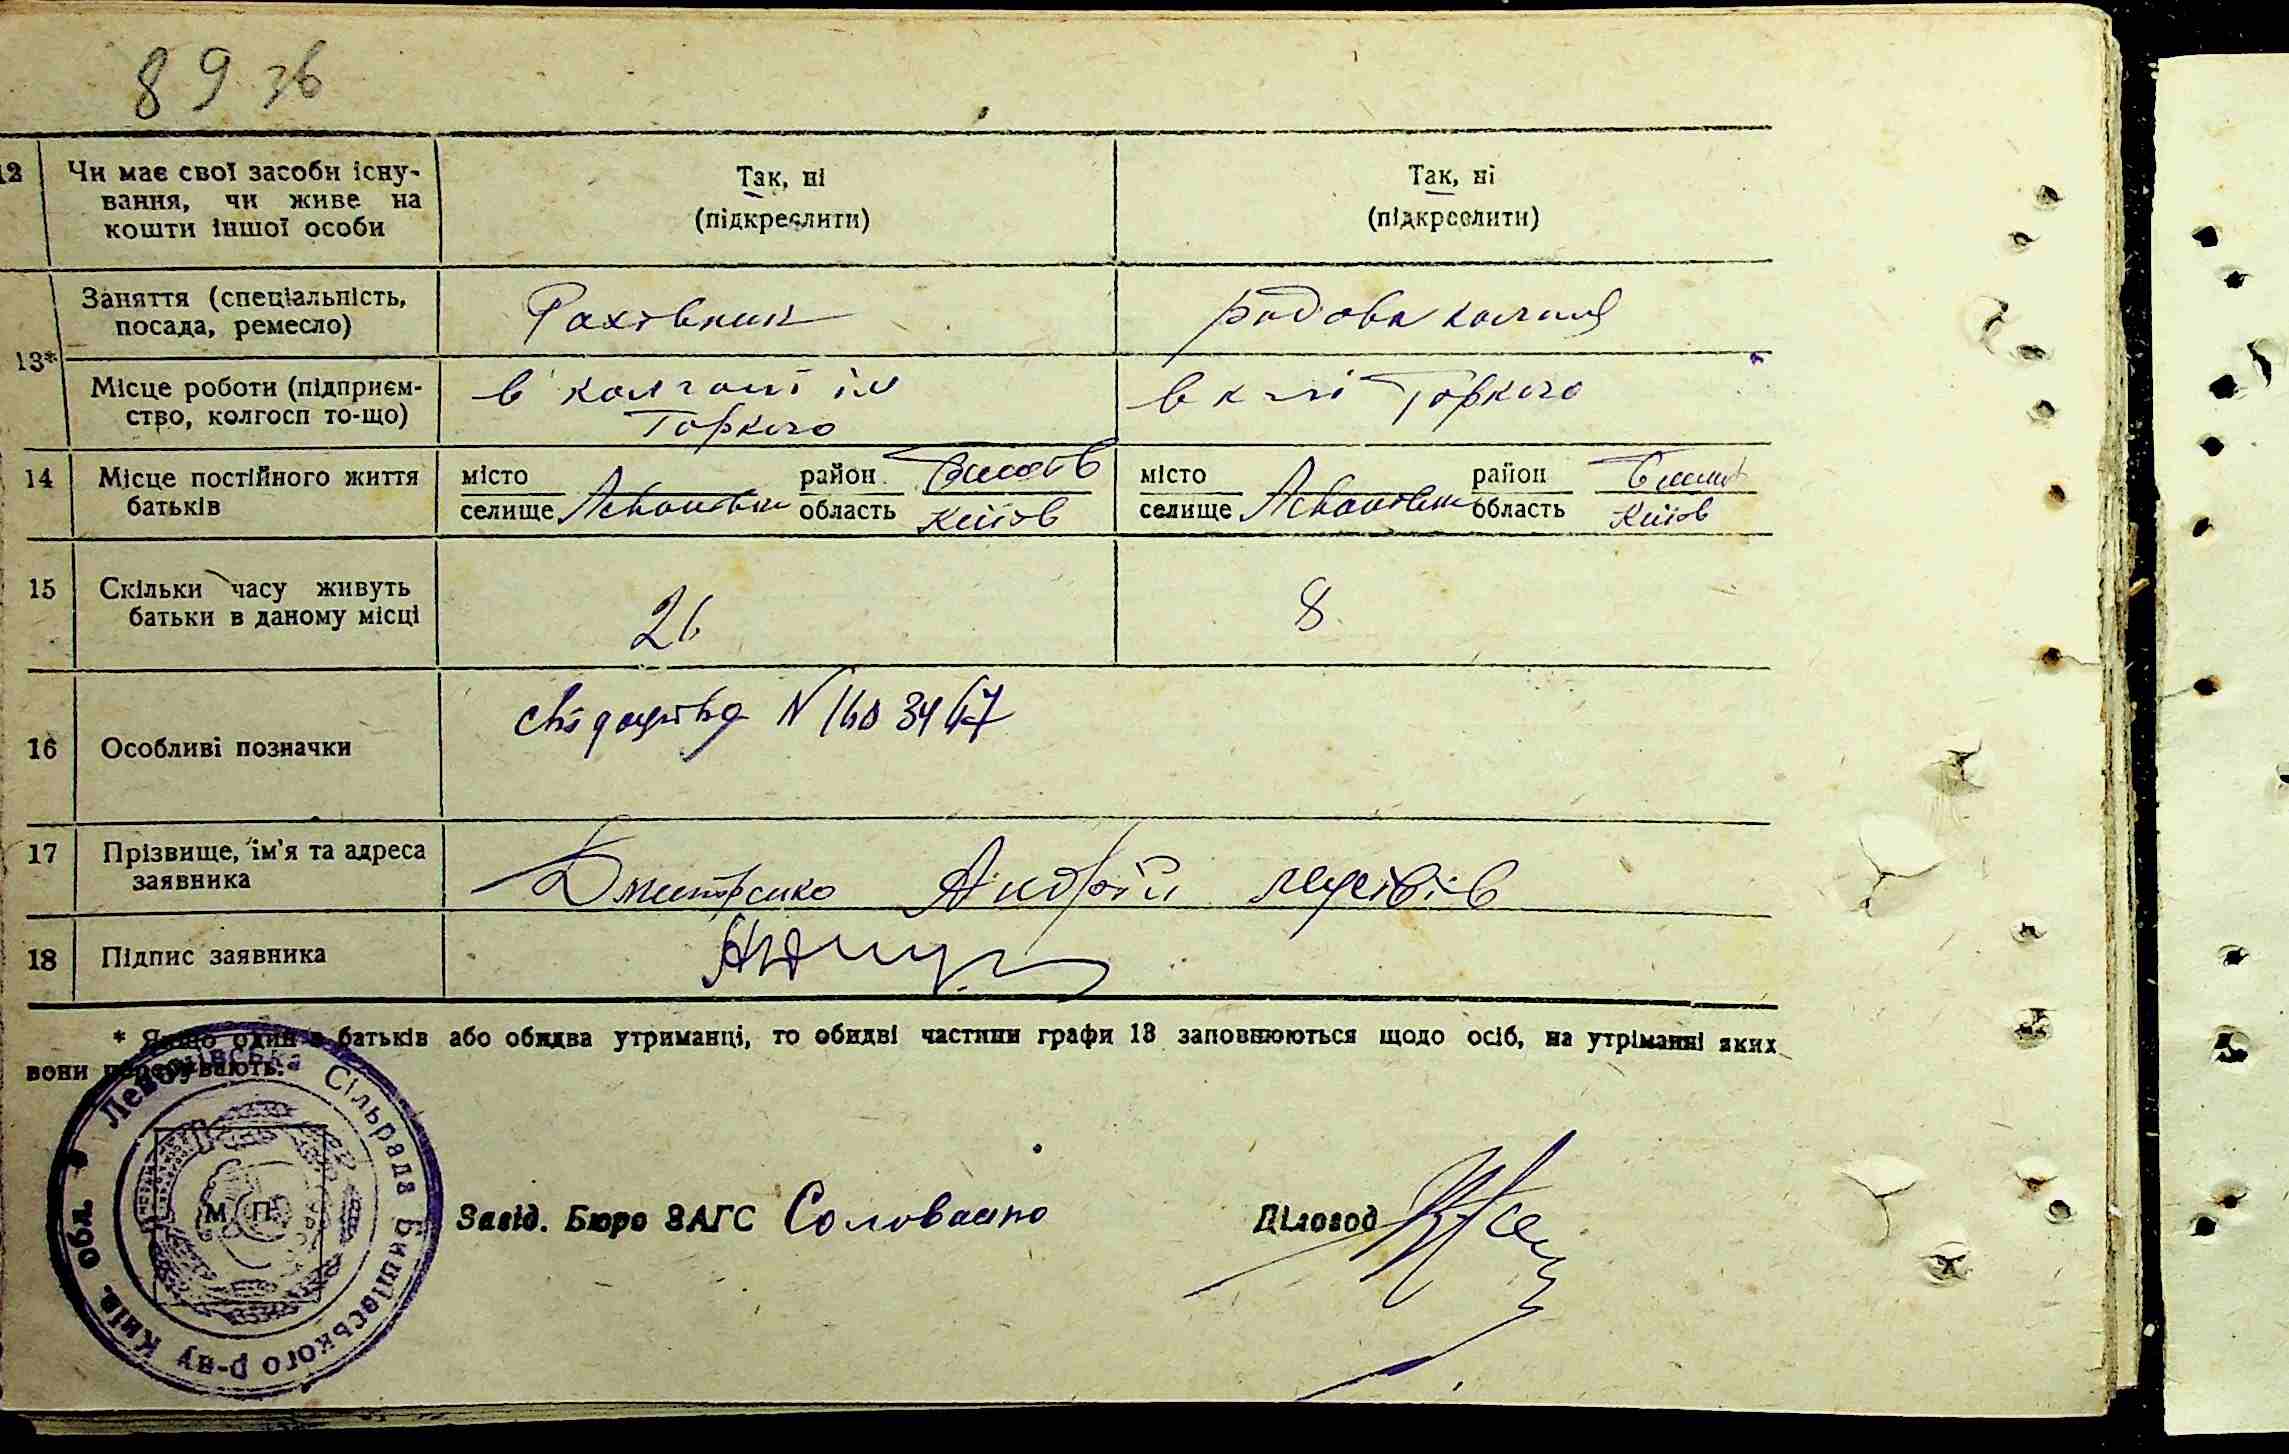 89 зв
12 Чи має свої засоби існу-
вання, чи живе на
кошти іншої особи
Так, ні
(підкреслити)
Так, ні
(підкреслити)
13*
Заняття (спеціальність,
посада, ремесло)
Рахівник
рядова
Місце роботи (підприєм-
ство, колгосп то-що)
в колгоспі ім
Горкого
в к-пі Горкого
14 Місце постійного життя
батьків
місто
селище
район
область Київ
місто
селище
район
область Київ
15 Скільки часу живуть
батьки в даному місці
26
8
16 Особливі позначки
свідоцтво N
17 Прізвище, ім'я та адреса
заявника
Дмитренко Андрій
18 Підпис заявника
* Якщо один з батьків або обидва утриманці, то обидві частини графи 13 заповнюються щодо осіб, на утріманні яких
вони перебувають.
Сільрада Бишівського р-ну Київ. обл.
М П
Завід. Бюро ЗАГС
Діловод